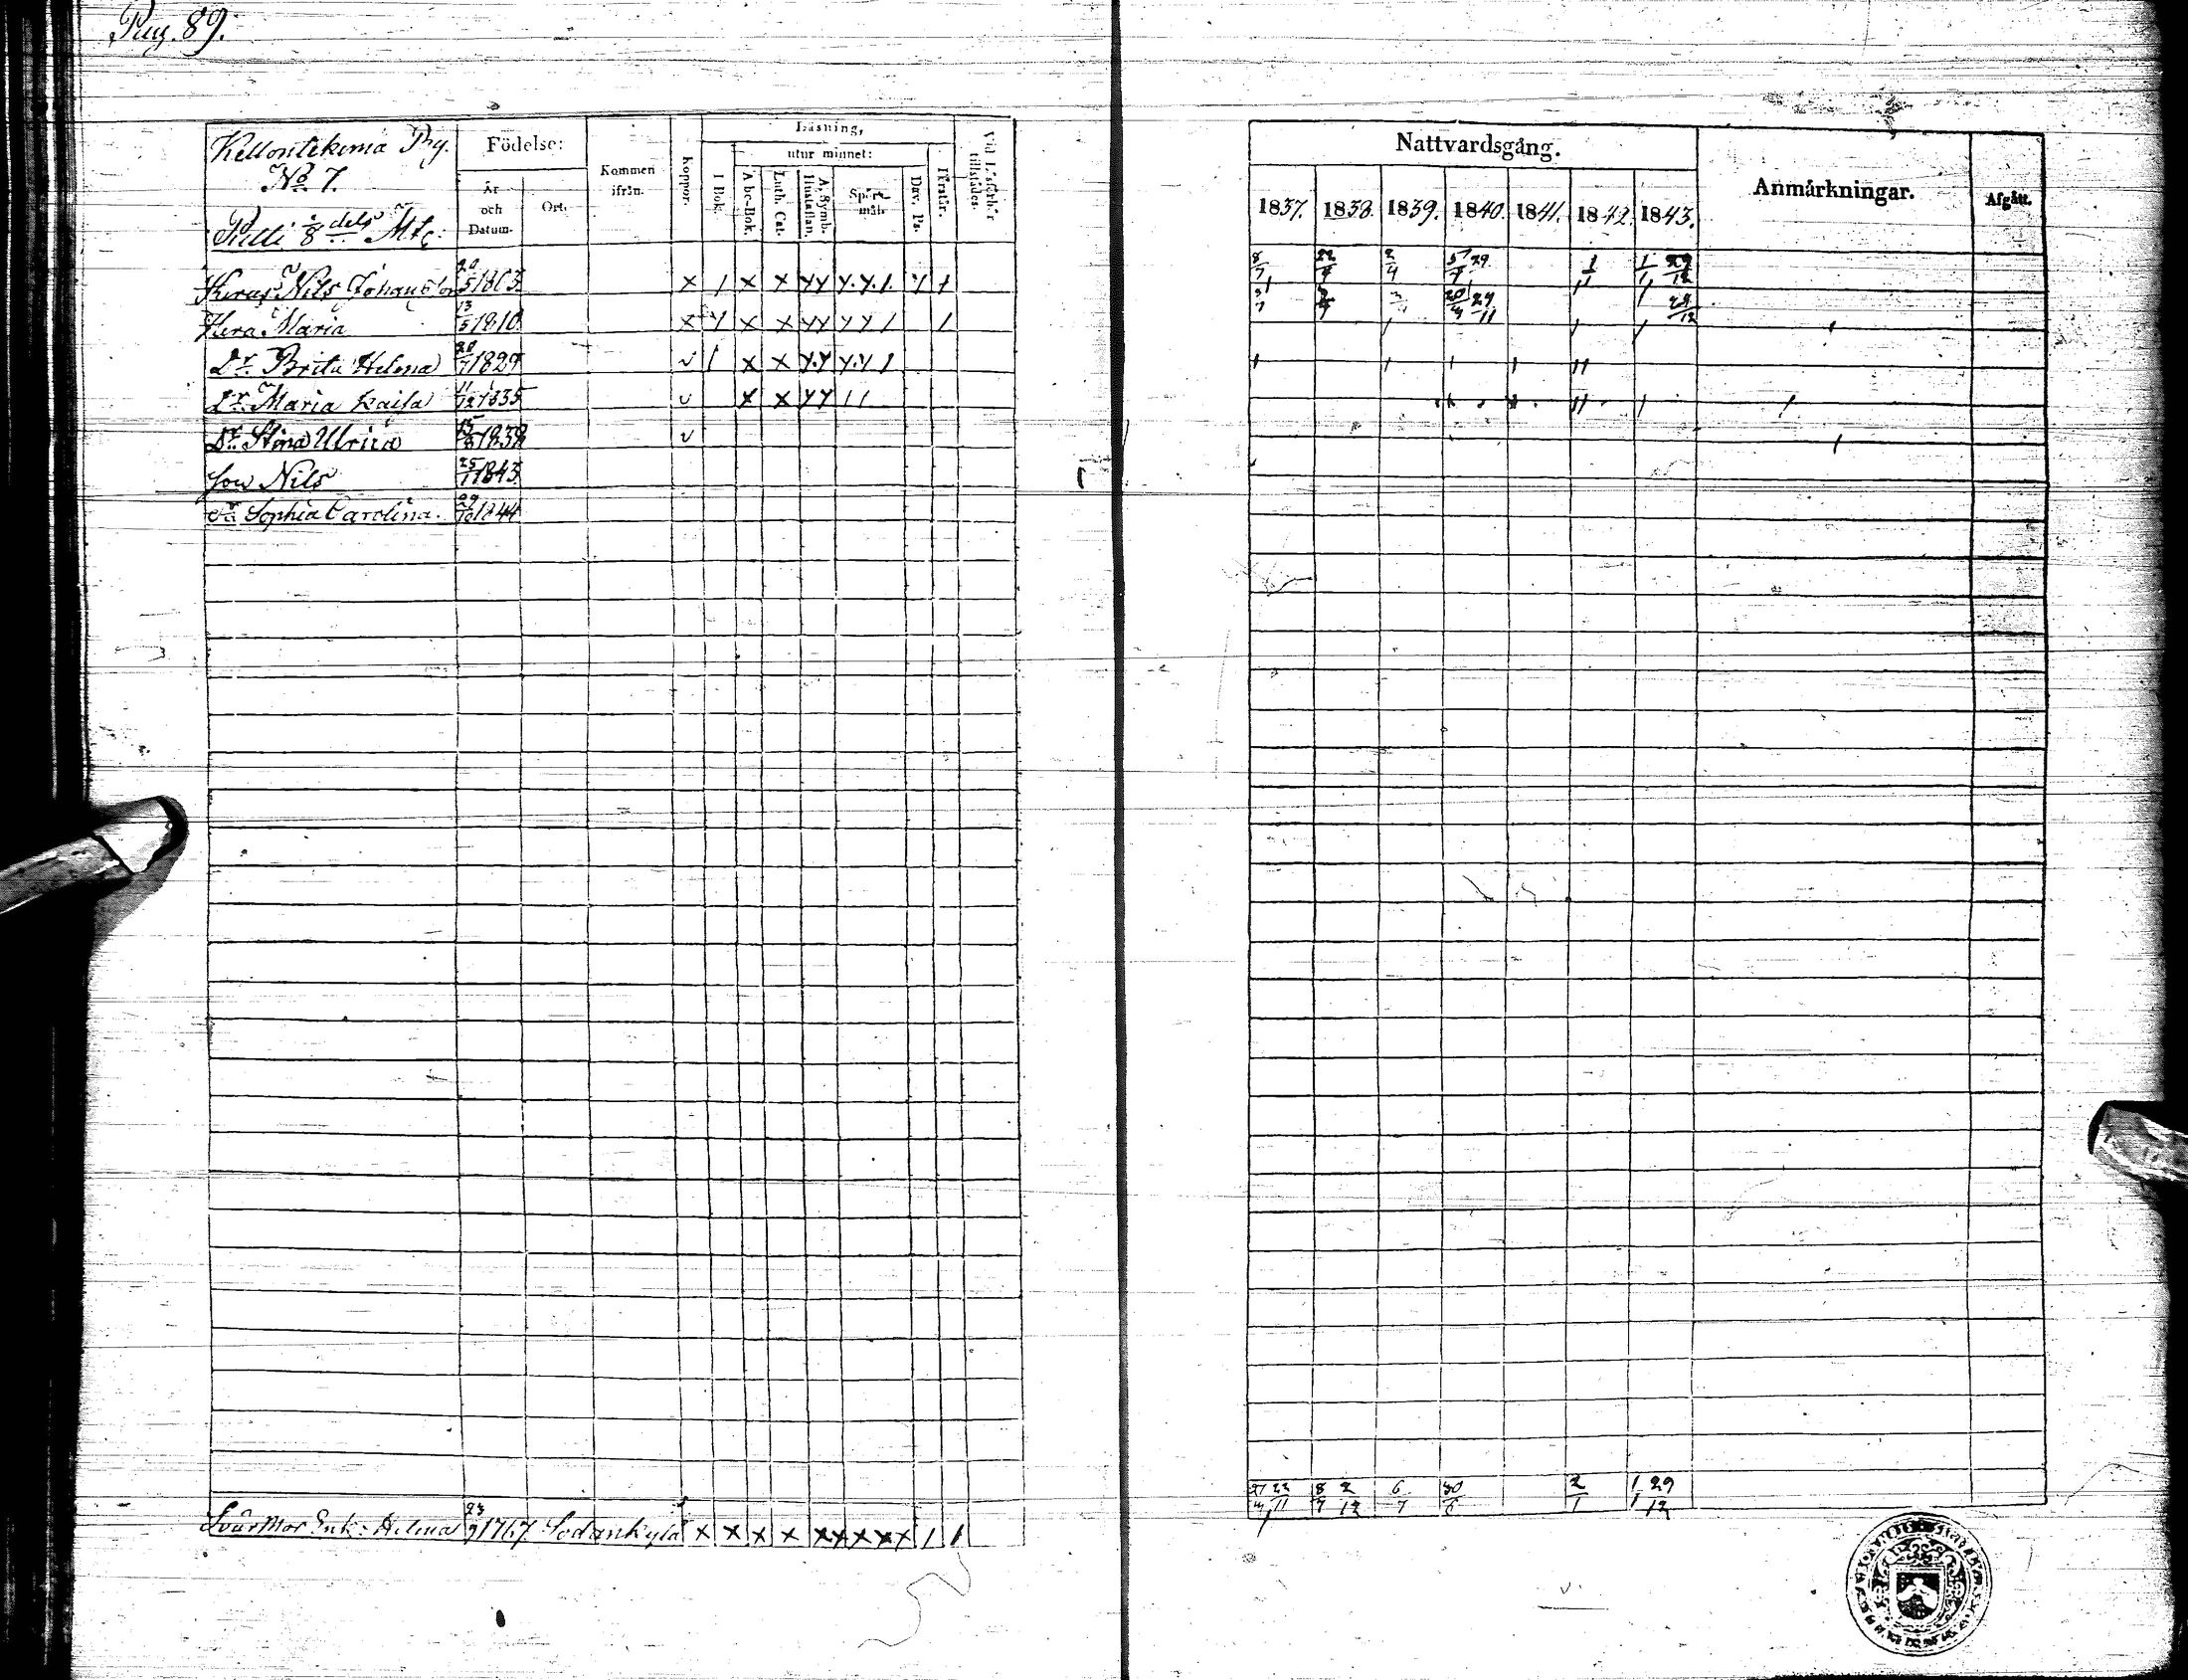 Pag. 89.
Kellontekemä By.
No 7.
Pulli 1/8 dels Mtl:
Födelse:
År och Datum.
Ort.
Kommen ifrån.
Koppor.
Läsning,
I Bok.
utur minnet:
A b c-Bok.
Luth. Cat.
A. Symb. Hustaflan.
Spörs-mål.
Dav. Ps.
Förstår.
Vid Läsförhör tillstädes.
Nils Johansson 20/5 1803 x / x x y y y. y. / y /
Maria 13/5 1810 x y x x y y y y / /
Dr. Brita Helena 20/7 1829 v / x x y. y y. y /
Dr. Maria Kaisa 11/12 1835 v x x y y / /
Dr. Stina Ulrica 1838 v
Son Nils 25/7 1843
Dr Sophia Carolina. 1844
Svärmor Enk: Helena 23/9 1767 Sodankylä x x x x x x x x x / /
Nattvardsgång.
1837. 1838. 1839. 1840. 1841. 1842. 1843.
Anmärkningar.
Afgått.
8/7 22/7 2/4 5/7 29 1/1 1/1 29/12
3/7 20/4 29/11 29/12
27/4 22/11 8/7 2/12 6/7 30/6 2/1 1/1 29/12